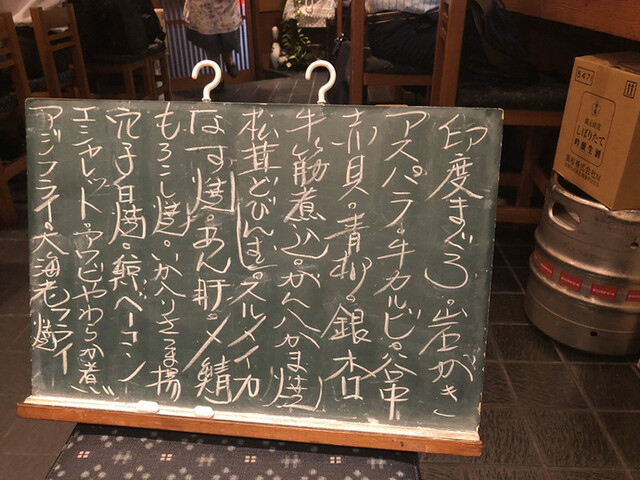 印度まぐろ。岩がき
アスパラ。牛カルビ。谷中
赤貝。青柳。銀杏
牛筋煮込。かんパかま焼
松茸どびんむし。スルメイカ
なす焼。あん肝。〆鯖
もろこし焼。いか入りさつま揚
穴子白焼。鯨ベーコン
エシャレット。アワビやわらか煮
アジフライ。大海老フライ
しぼりたて
吟醸生酒